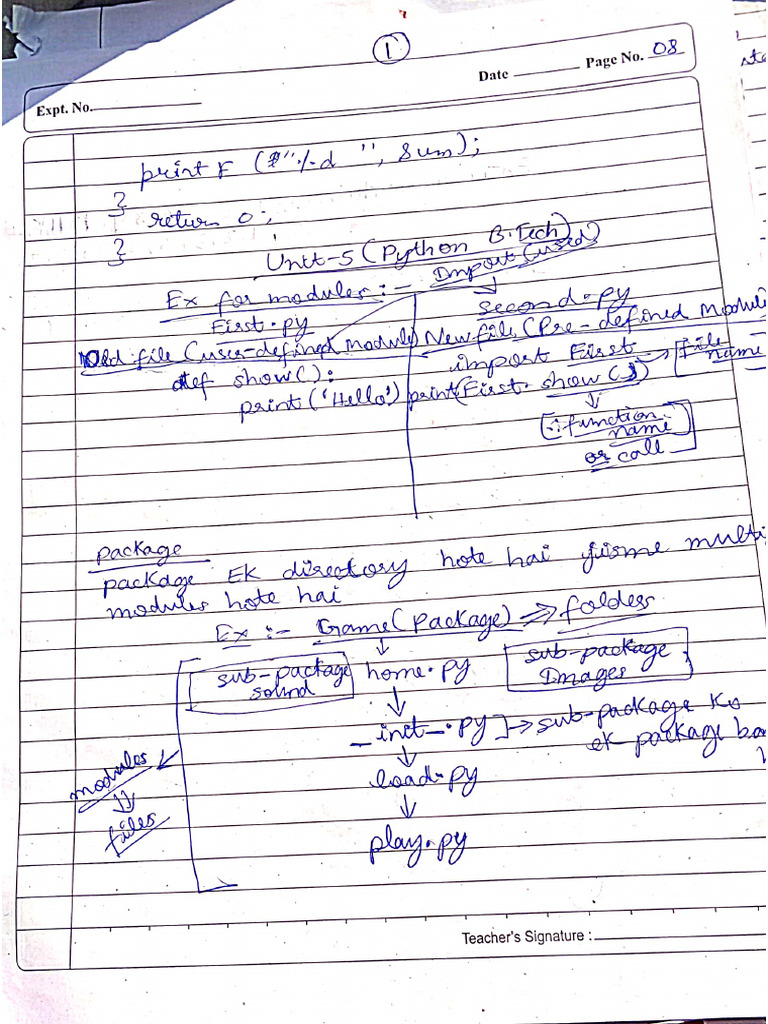 1
Date Page No. 08
Expt. No.
printF ("%d ", Sum);
}
return 0;
}
Unit-5 (Python B.Tech)
Ex for modules :- Import (used)
First.py second.py
Old file (user-defined module) New file (Pre-defined Module
def show(): import First → [file name
print('Hello') print(First.show())
[∴ function
name
or call]
package
package Ek directory hote hai jisme multi
modules hote hai
Ex :- Game (Package) ⇒ folders
sub-package sound home.py sub-package Images
_init_.py] → sub-package ko
ek package ba
modules load.py
files play.py
Teacher's Signature :